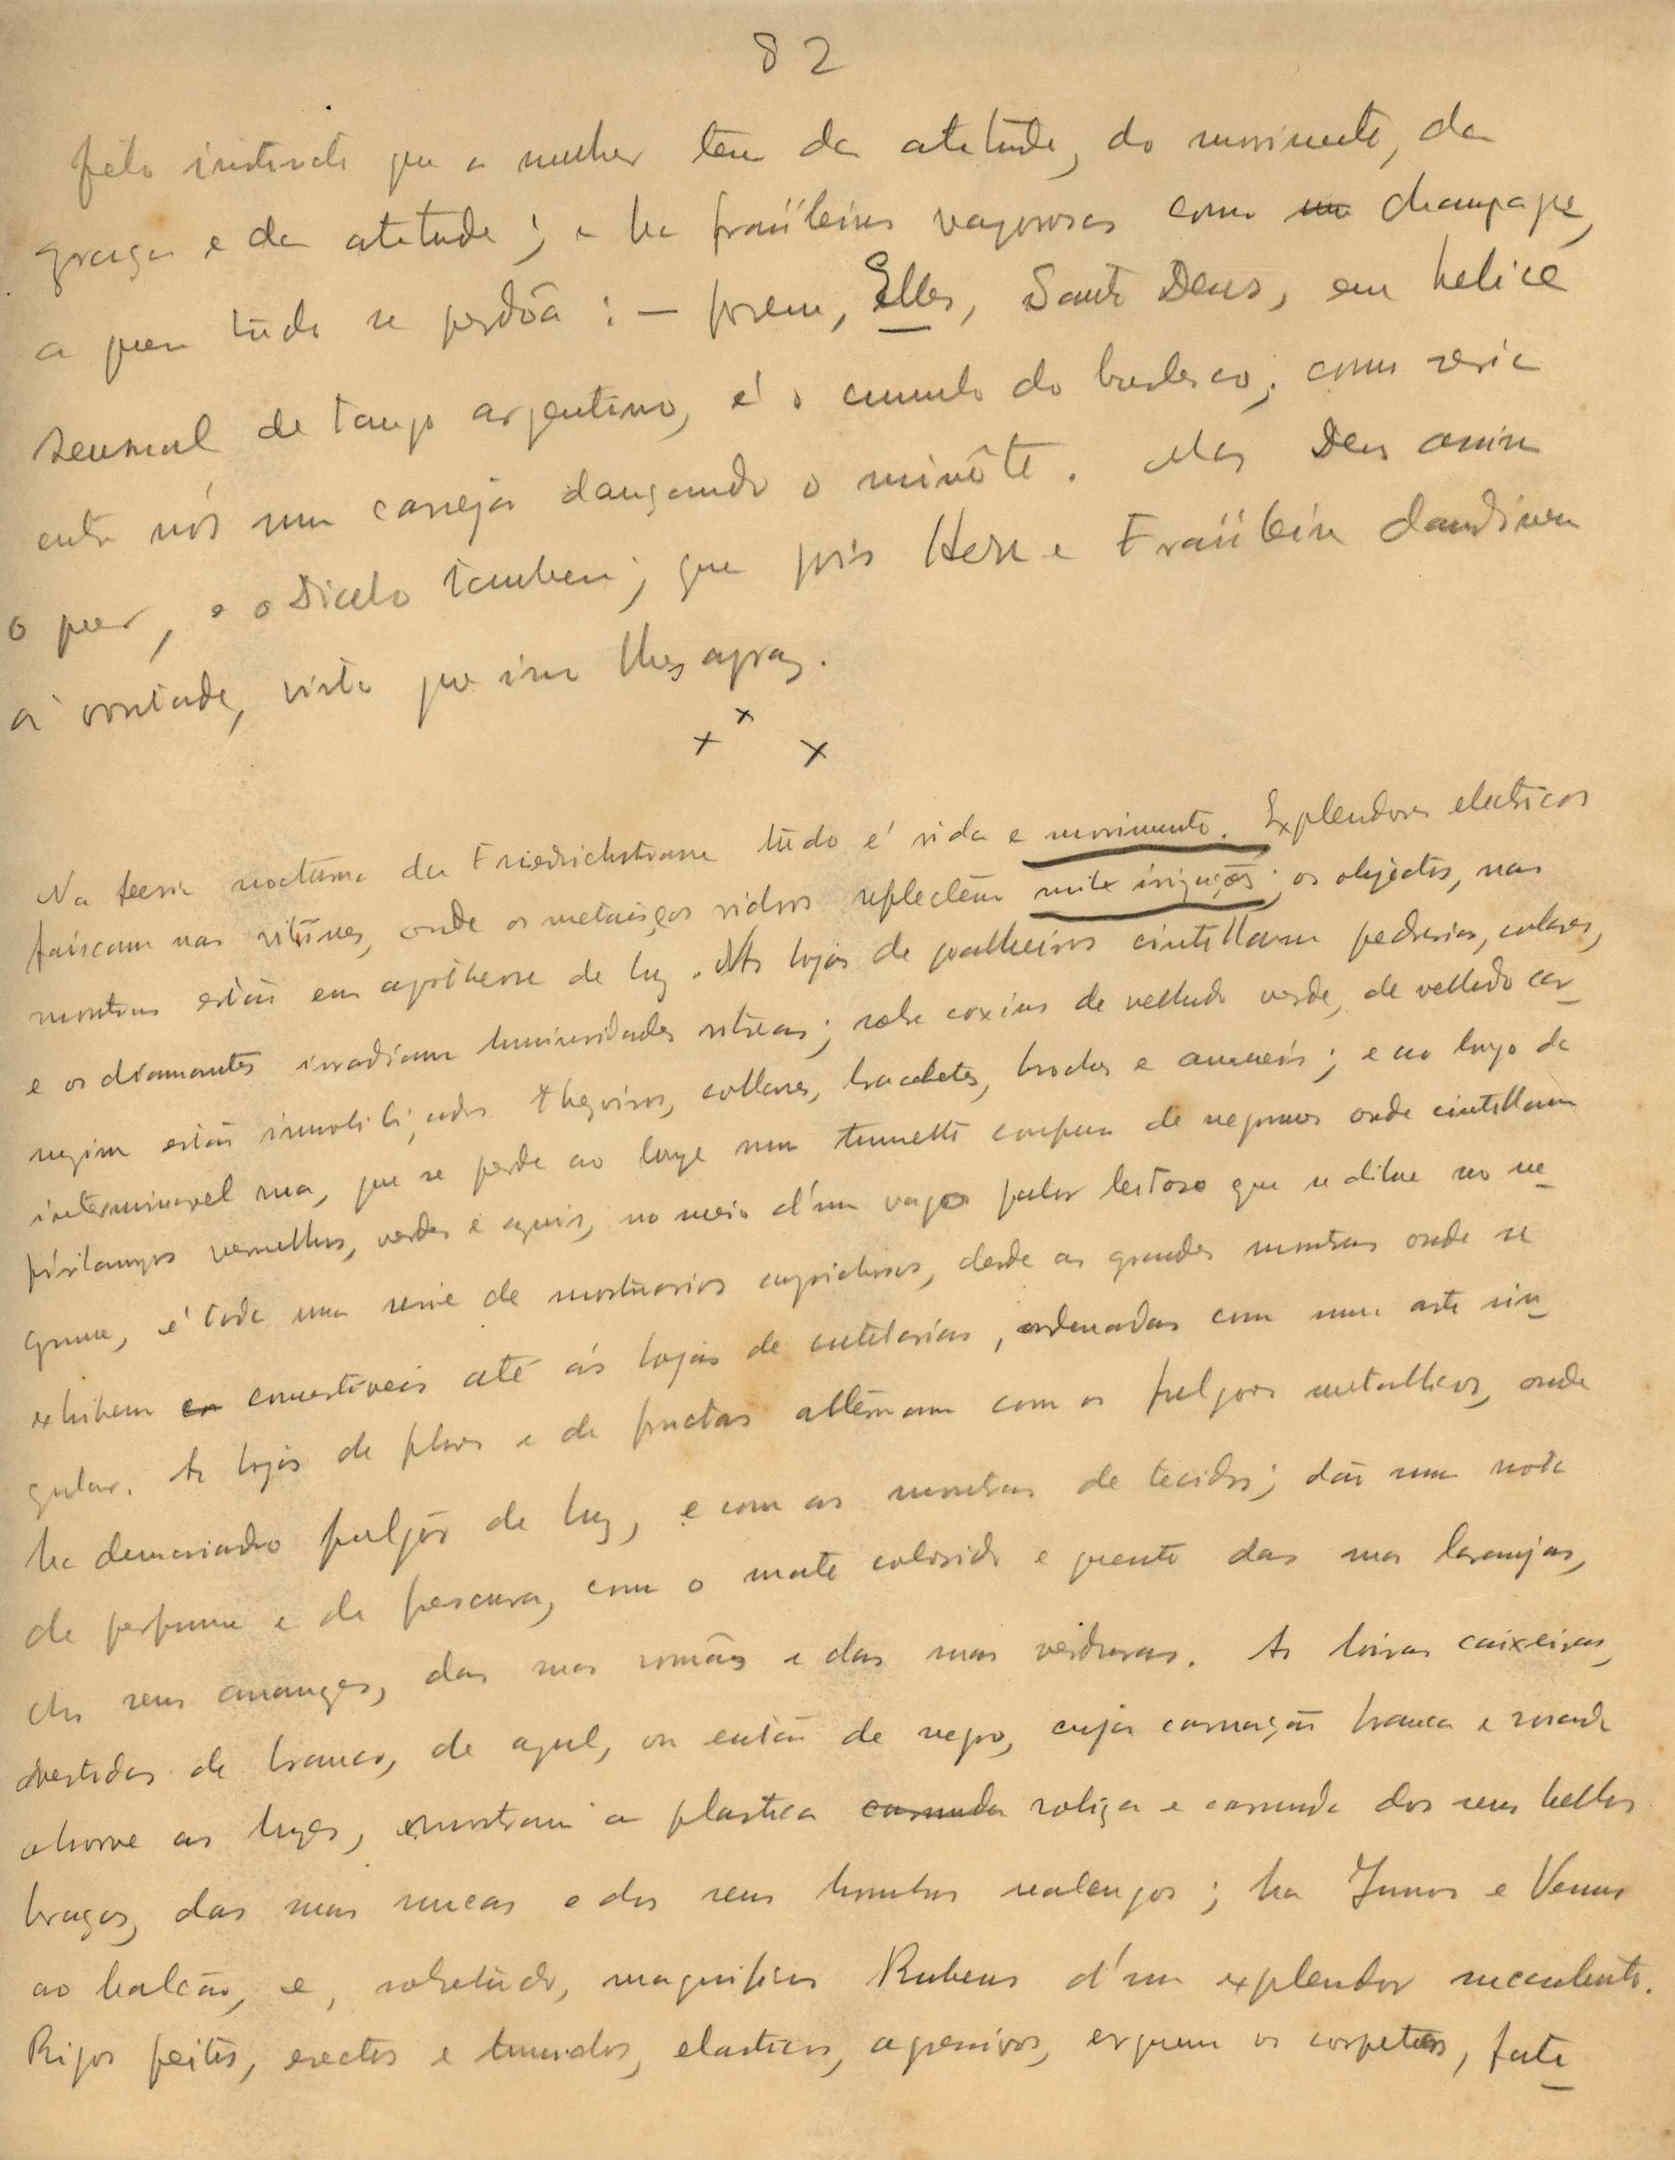 82
pelo instincto que a mulher tem da atitude, do movimento, da
graça e da atitude; e ha fraüleins vaporosas como um champagne,
a quem tudo se perdôa: — porem, Elles, Santo Deus, em helice
sensual de tango argentino, é o cumulo do burlesco; como seria
entre nós um carrejão dançando o minuête. Mas Deus assim
o quer, e o Diabo tambem; que pois Herr e Fraülein dandinem
á vontade, visto que isso lhes apraz.
x x x
Na feeria nocturna da Friedrichstrasse tudo é vida e movimento. Explendores electricos
faiscam nas vitrines, onde os metais, e os vidros reflectem mil irisações; os objectos, nas
montras estão em apotheose de luz. As lojas de joalheiros cintillam pedrarias, colares,
e os diamantes irradiam luminosidades vitreas; sobre coxins de velludo verde, de velludo car-
mezim estão immobilizados thezoiros, collares, braceletes, broches e anneis; e ao longo da
interminavel rua, que se perde ao longe num tunnel confuso de negrumes onde cintillam
pirilampos vermelhos, verdes e azuis, no meio d'um vago palor leitoso que se dilue no ne-
grume, é toda uma serie de mostruarios caprichosos, desde as grandes montras onde se
exhibem comestiveis até ás lojas de cutelarias, ordenadas com uma arte sin-
gular. As lojas de flores e de fructas alternam com os fulgores metallicos, onde
ha demasiado fulgôr de luz, e com as montras de tecidos; dão uma nota
de perfume e de frescura, com o mate colorido e quente das suas laranjas,
dos seus ananazes, das suas romãs e das suas verduras. As loiras caixeiras,
vestidas de branco, de azul, ou então de negro, cuja carnação branca e rosada
absorve as luzes, mostram a plastica carnuda roliça e carnuda dos seus bellos
braços, das suas nucas e dos seus hombros realengos; ha Junos e Venus
ao balcão, e, sobretudo, magnificos Rubens d'um explendor succulento.
Rijos peitos, erectos e tumidos, elasticos, agressivos, erguem os corpetes, farta-